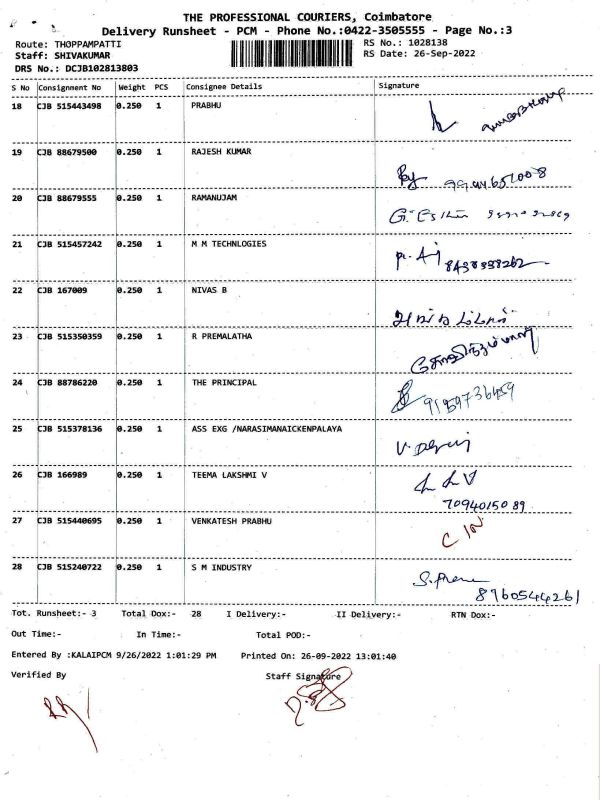 THE PROFESSIONAL COURIERS, Coimbatore
Delivery Runsheet - PCM - Phone No.:0422-3505555 - Page No.:3
Route: THOPPAMPATTI
RS No.: 1028138
Staff: SHIVAKUMAR
RS Date: 26-Sep-2022
DRS No.: DCJB102813803
S No Consignment No Weight PCS Consignee Details Signature
18 CJB 515443498 0.250 1 PRABHU
19 CJB 88679500 0.250 1 RAJESH KUMAR
20 CJB 88679555 0.250 1 RAMANUJAM
21 CJB 515457242 0.250 1 M M TECHNLOGIES
22 CJB 167009 0.250 1 NIVAS B
23 CJB 515350359 0.250 1 R PREMALATHA
24 CJB 88786220 0.250 1 THE PRINCIPAL
9159736459
25 CJB 515378136 0.250 1 ASS EXG /NARASIMANAICKENPALAYA
26 CJB 166989 0.250 1 TEEMA LAKSHMI V
7094015089
27 CJB 515440695 0.250 1 VENKATESH PRABHU
28 CJB 515240722 0.250 1 S M INDUSTRY
8760544261
Tot. Runsheet:- 3 Total Dox:- 28 I Delivery:- II Delivery:- RTN Dox:-
Out Time:- In Time:- Total POD:-
Entered By :KALAIPCM 9/26/2022 1:01:29 PM Printed On: 26-09-2022 13:01:40
Verified By Staff Signature